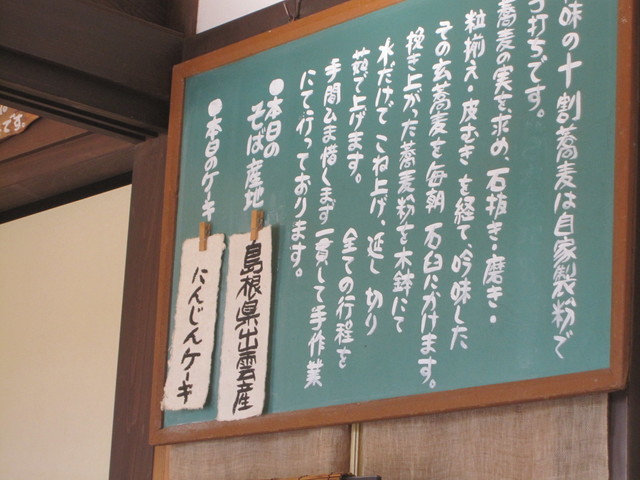 味の十割蕎麦は自家製粉で
打ちです。
蕎麦の実を求め、石抜き・磨き・
粒揃え・皮むきを経て、吟味した
その玄蕎麦を毎朝石臼にかけます。
挽き上がった蕎麦粉を木鉢にて
水だけでこね上げ、延し切り
茹で上げます。全ての行程を
手間ひま惜します一貫して手作業
にて行っております。
●本日の
そば産地
島根県出雲産
●本日のケーキ
にんじんケーキ
です。